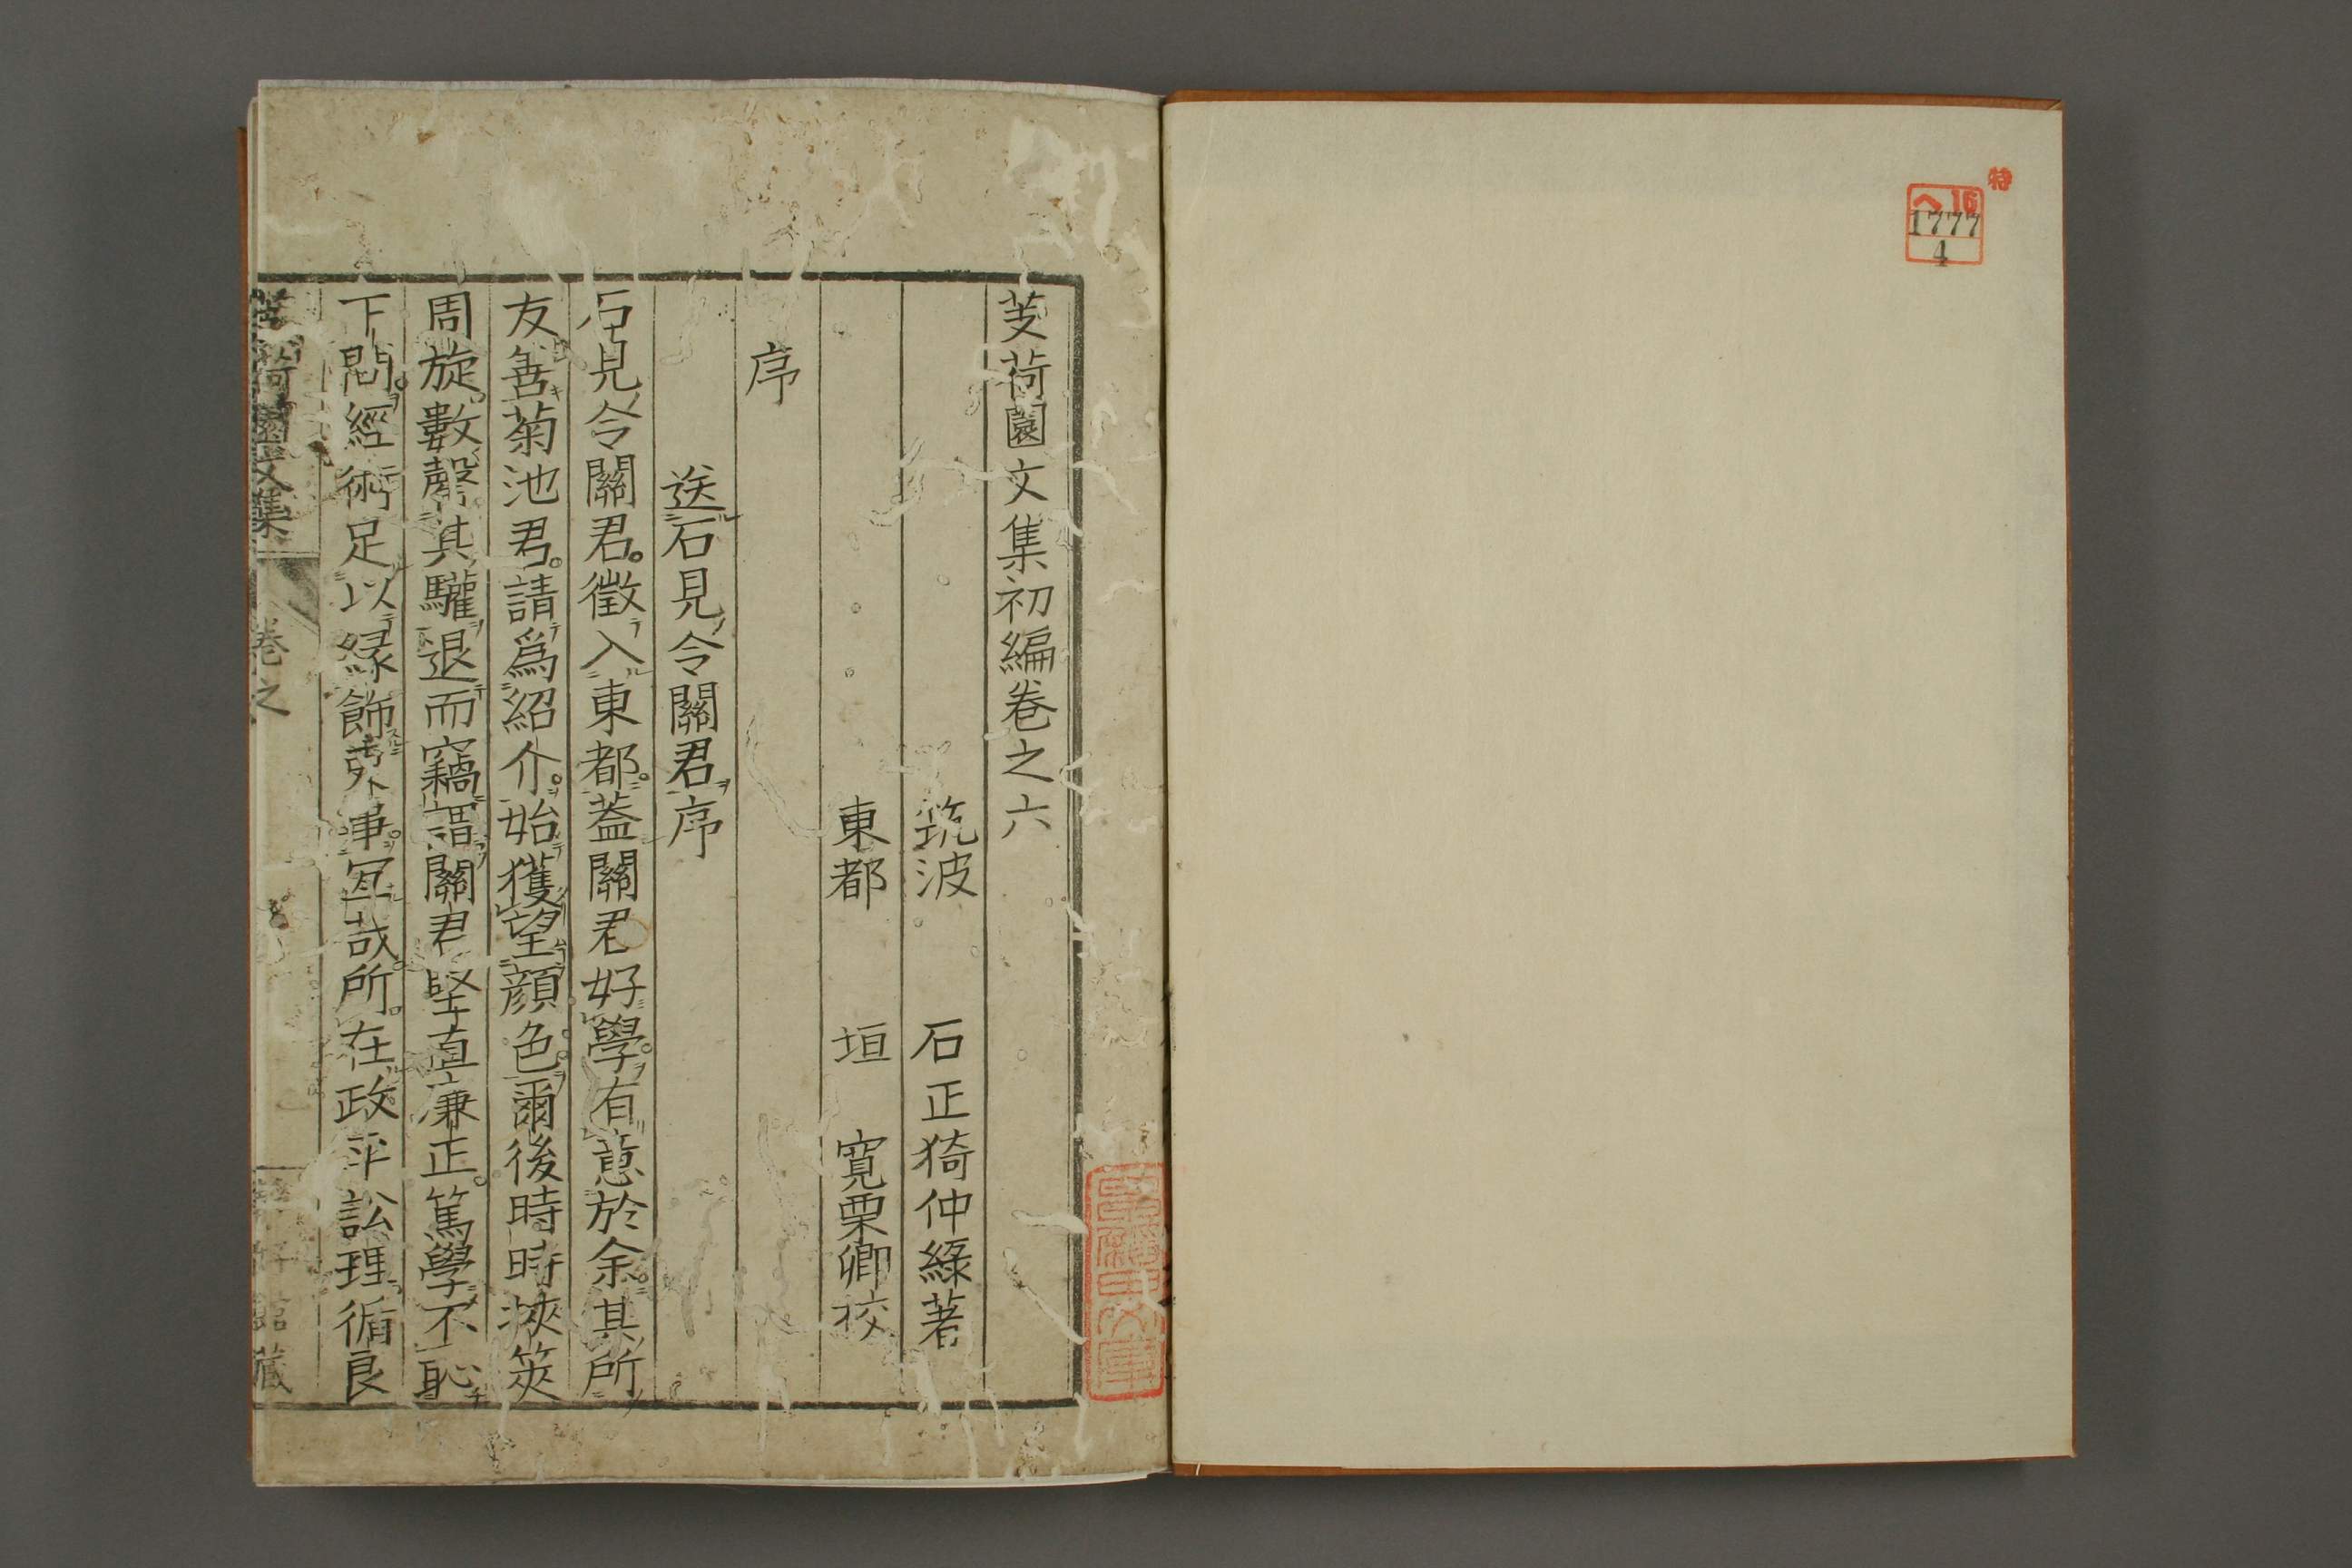 特
ヘ16
1777
4
芰荷園文集初編卷之六
筑波 石正猗仲緑著
東都 垣 寛栗卿校
序
送石見令關君序
石見令關君。徵入東都。蓋關君好學。有意於余。其所
友善菊池君。請爲紹介。始獲望顔色。爾後時時挾筴
周旋。數罄其驩。退而竊謂。關君堅直廉正。篤學不恥
下問。經術足以緣飾事。冝哉。所在政平訟理。循良
芰荷園文集 卷之 館藏